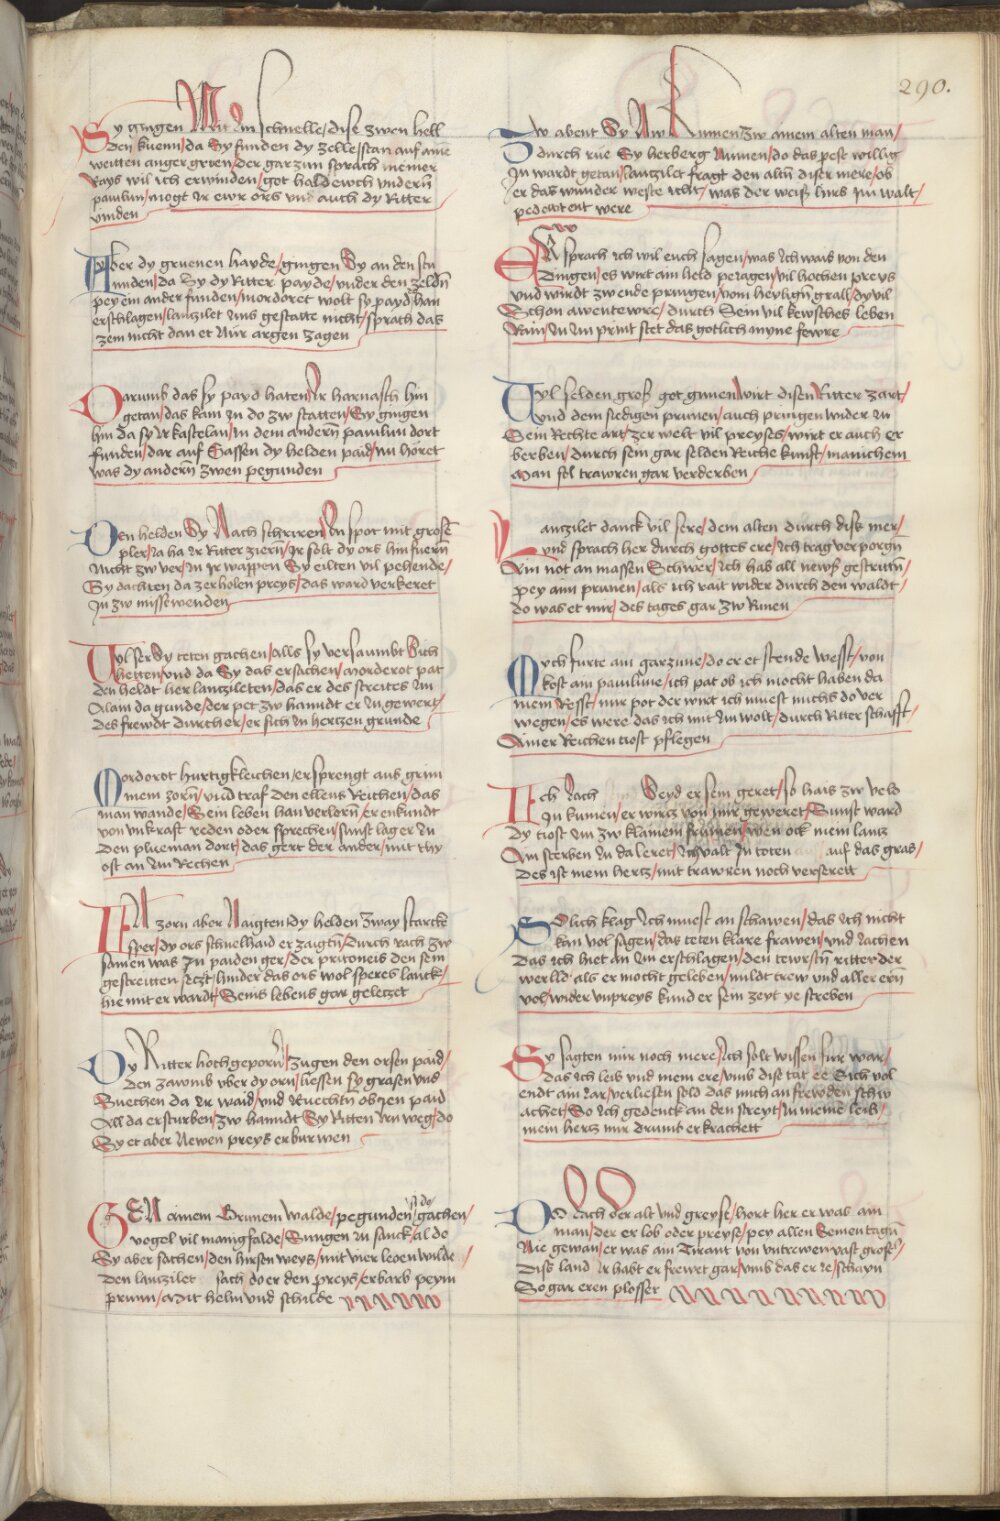 290.
Sy gingen Mit Im schnelle / dise zwen hell
den kuenn / da Sy funden dy zelle / stan auf aine
weitten anger gruen / der garzun sprach meiner
Rays wil ich erwinden / got hald ewch vndern
paulun / mogt Ir ewr ors vnd auch dy Ritter
vinden
Vber dy gruenen hayde / gingen Sy an den stu
nnden / da Sy dy Ritter payde / vnder den zeldn̄
pey ein ander funden / mordoret wolt sy payd han
erschlagen / lanzilet uns gestatte nicht / sprach das
zem nicht dan et Nur argen zagen
Darumb das sy payd haten Ir harnasch hin
getan / das kam in do zw statten / Sy gingen
hin da sy Ir kastelan / in dem andern̄ paulun dort
funden / dar auf Sassen dy helden paid / nu horet
was dy andern̄ zwen pegunden
Den helden Sy Nach schriren / In spot mit grosē
pler / Ia ha Ir Ritter ziern̄ / Ir solt dy ors hin fuern̄
Nicht zw ver / in Ir wappen Sy eilten vil pehende /
Sy dachten da zerholen preys / das ward verkeret
In zw missewenden
Vil ser Sy teten gachen / alls sy versaumbt Sich
hetten / vnd da Sy das ersachen / mordorot pat
den heldt her lanzileten / das er des streites in
Alain da gunde / der pet zw hanndt er In gewert /
des frewdt durch er / er sich in hertzen grunde
Mordorot hurtigkleichen / er sprengt aus grim
mem zorn̄ / vnd traf den ellens Reichen / das
man wande / Sein leben hau verlorn̄ / er enkundt
von vnkraft reden oder sprechen / sunst lag er in
den plueman dort / das gert der ander / mit thy
ost an Im Rechen
In zorn aber Naigten dy helden zway starck
sper / dy ors schnelhaid er zaigtn̄ / durch rach zw
samen was In paiden ger / der pritoneis den sein
gestreitten seczt / hinder das ors wol speres lanck /
hie mit er wardt / Seins lebens gar geleczet
Dy Ritter hochgeporn̄ / zugen den orsen paid /
den zawmb vber dy orn̄ / liessen sy grasen vnd
Suechen da Ir waid / vnd Kuechtn̄ ob Ien paid
All da ersturben / zw hanndt Sy Ritten Irn weg / do
Sy et aber Newen preys erburwen
GEN einem Grunem walde / pegunden do gachen /
vogel vil manigfalde / Sungen in sanck / al do
Sy aber sachen / den hirsen weys / mit vier leoen wilde
den lanzilet sach do er den preys / erbarb peym
prunn / Mit helm vnd schilde
Zw abent Sy Aw Kumen zw ainem alten man /
durch rue Sy herberg Namen / do das pest willig
In wardt getan / lanzilet fragt den altn̄ diser mere / ob
er das wunder weste icht / was der weiß hirs Im walt /
pedewtent were
ER sprach ich wil euch sagen / was Ich wais von den
dingen / es wirt ain held pejagen / vil hochen preys
vnd wirdt zw ende pringen / vom heylign̄ grall / dy vil
Schon awentewre / durch Sein vil kewsches leben
Rain / in Im print stet das gotlich myne fewre
Vyl selden groß got ginnen wirt disen Ritter zart /
vnd dem siedigen prunen / auch pringen wider in
Sein Rechte art / zer welt vil preyses / wirt er auch er
berben / durch sein gar selden Reiche kunst / manichem
Man sol trawren gar verderben
Lanzilet danck vil sere / dem alten durch disse mer /
vnd sprach her durch gottes ere / ich trag verporgn̄
Ain not an massen Schwer / ich hab all newß gestritn̄ /
pey aim prunen / als ich rait wider durch den waldt /
do was et mir / des tages gar zw Rinen
Och furte ain garzune / do er et stende wesst / von
kost ain paulune / ich pat ob ich mocht haben da
mein Resst / mir pot der wirt ich muest michs do ver
wegen / es were das ich mit Im wolt / durch Ritter schafft /
Ainer Reichen tiost pflegen
Ich Iach Seyd er sein geret / so hais zw veld
In kumen / er wirtz von mir geweret / Sunst ward
dy tiost In zw klainem frumen / wen ock mein lanz
Am sterben In da leret / Ich valt In toten auf das gras /
des ist mein hertz / mit trawren noch verserett
Solich klag Ich muest an schawen / das ich nicht
kan vol sagen / das teten klare frawen / vnd Iachen
das ich hiet an Im erschlagen / den tewrstn̄ ritter der
werlld als er mocht geleben / mildt trew vnd aller ern̄
vol / wider vnpreys kund er sein zeyt ye streben
Sy sagten mir noch mere / Ich solt wissen fur war /
das ich leib vnd mein ere / vmb dise tat ee Sich vol
endt ain Iar / verliesen sold das mich an frewden schw
achet / So ich gedenck an den streyt / in meinē leib /
mein hertz mir drumb er krachett
Do Iach der alt vnd greyse / hort her er was ain
man / der er lob oder preyse / pey allen Seinen tagn̄
Nie gewan / er was ain Tirant von vntrewen vast grosse /
diss land Ir habt er frewet gar / vmb das er Ie / schayn
So gar eren plosser